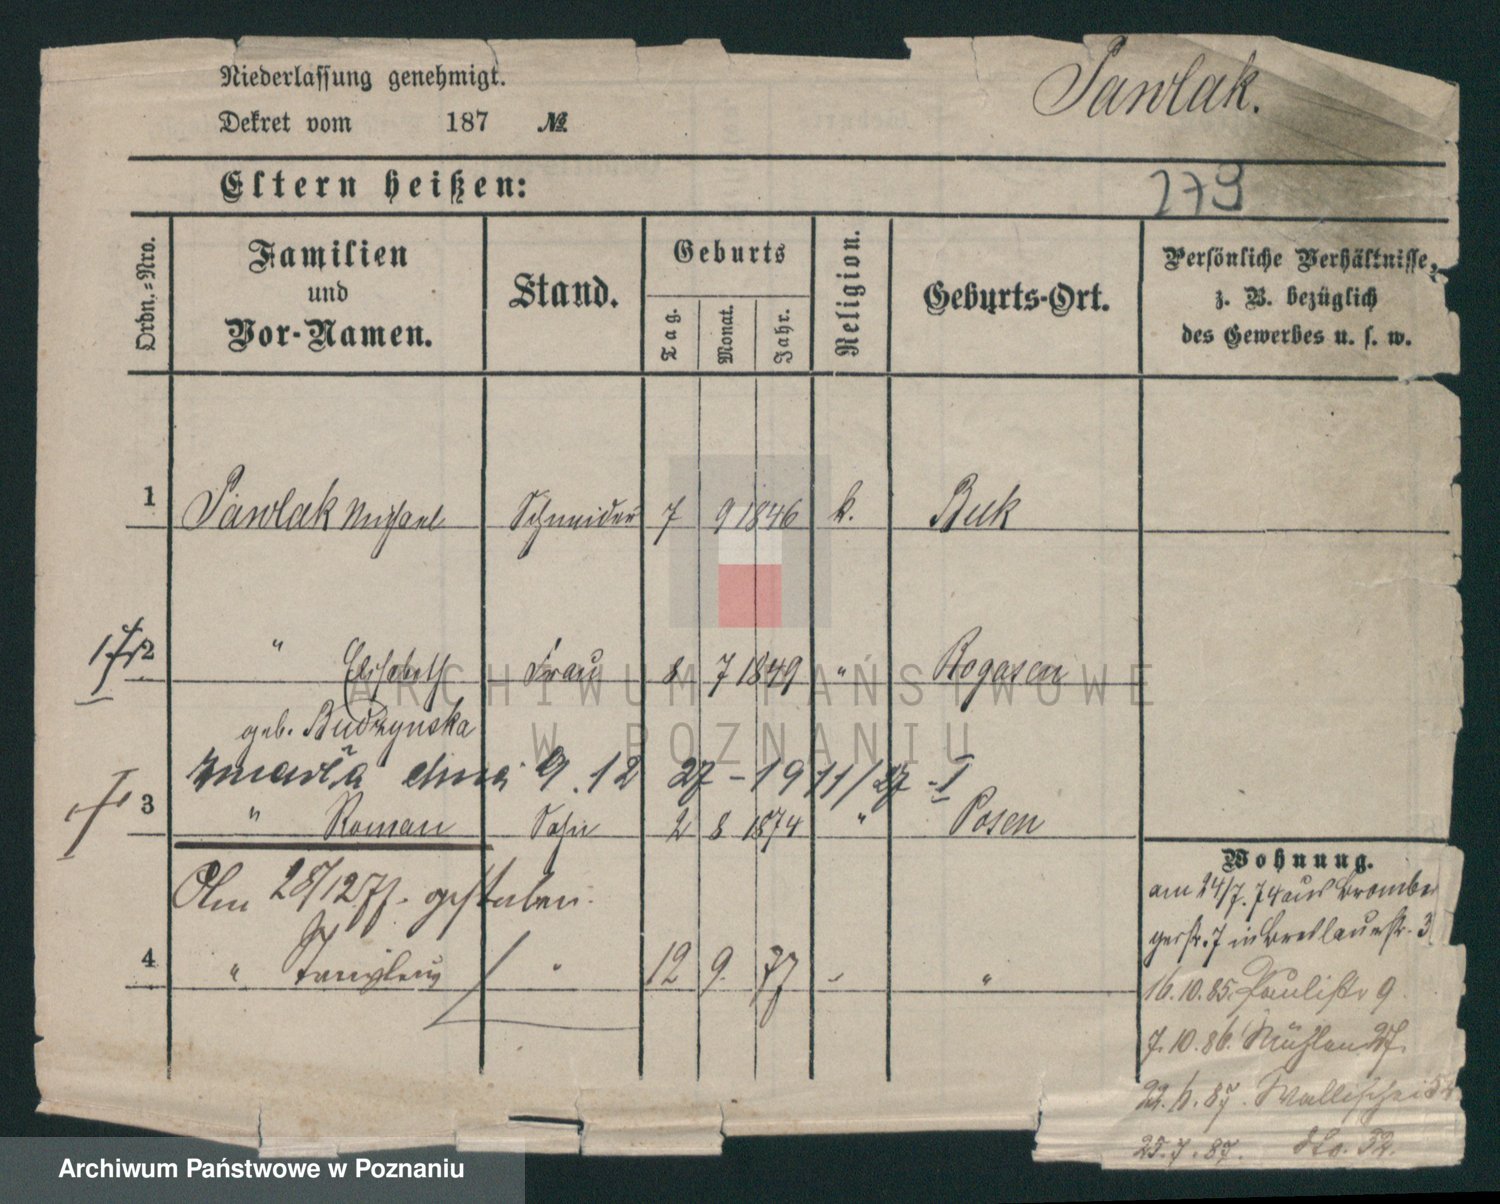 Niederlassung genehmigt.
Dekret vom 187 №
Pawlak.
Eltern heißen:
279
Ordn.-Nro.
Familien und Vor-Namen.
Stand.
Geburts
Tag.
Monat.
Jahr.
Religion.
Geburts-Ort.
Persönliche Verhältnisse, z. B. bezüglich des Gewerbes u. s. w.
1 Pawlak Michael Schneider 7 9 1846 k. Buk
2 " Elisabeth Frau 8 7 1849 " Rogasen
geb. Budzynska
zmarła dnia 9.12 27-1911/27-I
3 " Roman Sohn 2 8 1874 " Posen
Am 28/12 77. gestorben.
4 " Stanislaus " 12 9. 77 " "
Wohnung.
am 24/7. 74 aus Bromber
gerstr. 7 in Breslauerstr. 3
16.10.85. Paulistr 9
7.10.86. Mühlen 27.
22. 6. 87. Wallischei 52.
25.7.87. dto. 52.
ARCHIWUM PAŃSTWOWE
W POZNANIU
Archiwum Państwowe w Poznaniu